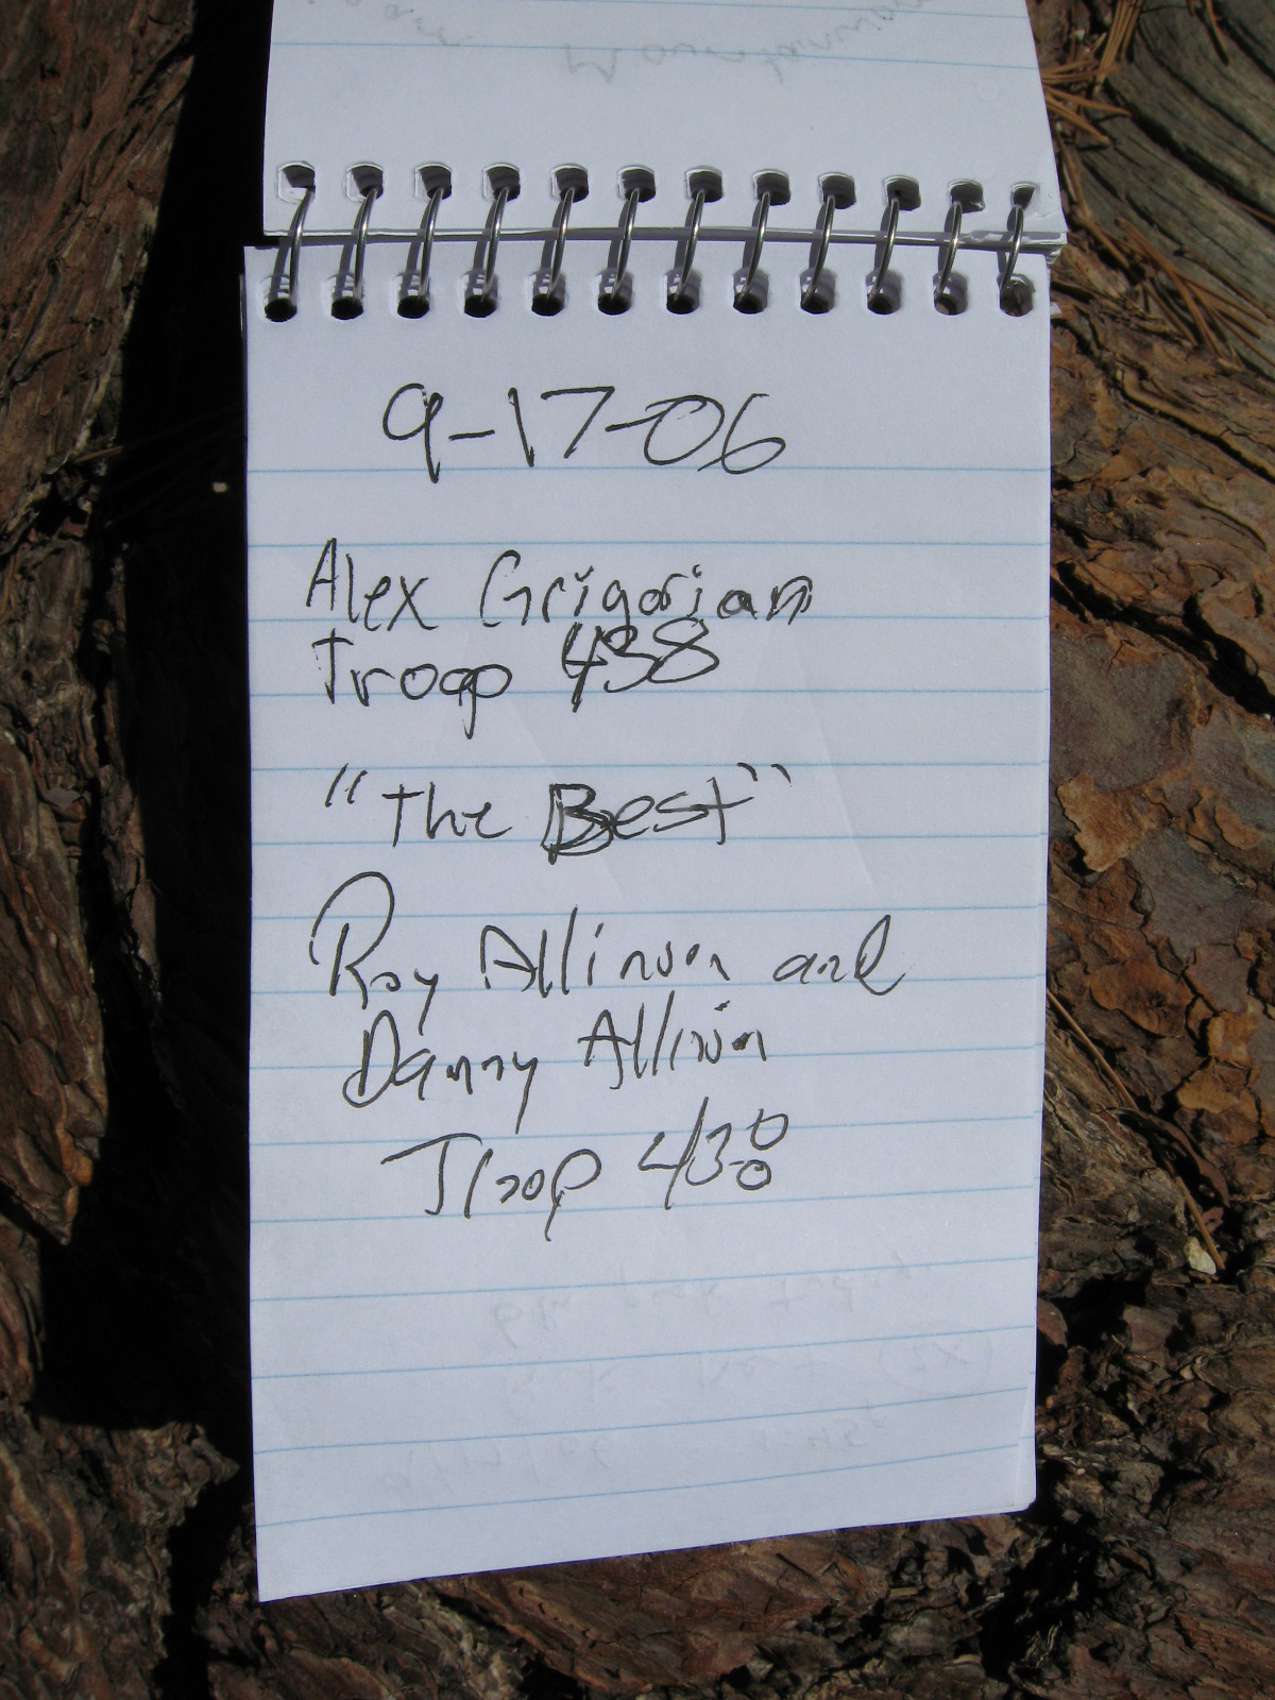 9-17-06
Alex Grigorian
Troop 438
"The Best"
Roy Allinson and
Danny Allison
Troop 438